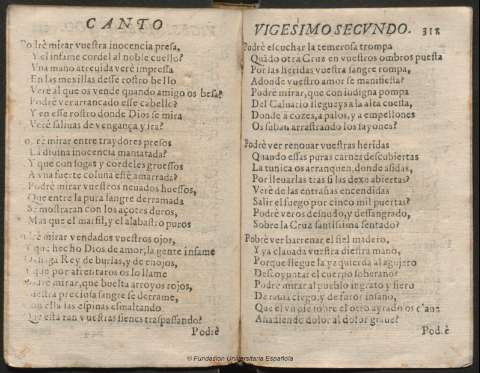 CANTO
Podrè mirar vuestra inocencia presa,
Y el infame cordel al noble cuello?
Vna mano atreuida verè impressa
En las mexillas desse rostro bello
Verè al que os vende quando amigo os besa?
Podrè ver arrancado esse cabello?
Y en esse rostro donde Dios se mira
Verè saliuas de vengança y ira?
odrè mirar entre traydores presos
La diuina inocencia maniatada?
Y que con sogas y cordeles gruessos
A vna fuerte coluna estè amarrada?
Podrè mirar vuestros neuados huessos,
Que entre la pura sangre derramada
Se mostraran con los açotes duros,
Mas que el marfil, y el alabastro puros
drè mirar vendados vuestros ojos,
Y que hecho Dios de amor, la gente infame
Os haga Rey de burlas, y de enojos,
Y que por afrentaros os lo llame
Podrè mirar, que buelta arroyos rojos,
vuestra preciosa sangre se derrame,
con ella las espinas esmaltando
Que està ran vuestras sienes traspassando?
Podrè
VIGESIMO SECVNDO. 312
Podrè escuchar la temerosa trompa
Quãdo otra Cruz en vuestros ombros puesta
Por las heridas vuestra sangre rompa,
Adonde vuestro amor se manifiesta?
Podrè mirar, que con indigna pompa
Del Caluario llegueys a la alta cuesta,
Donde a cozes, a palos, y a empellones
Os suban arrastrando los sayones?
Podrè ver renouar vuestras heridas
Quando essas puras carnes descubiertas
La tunica os arranquen, donde asidas,
Por lleuarlas tras si las dexo abiertas?
Verè de las entrañas encendidas
Salir el fuego por cinco mil puertas?
Podrè veros desnudo, y desangrado,
Sobre la Cruz santissima sentado?
Podrè ver barrenar el fiel madero,
Y ya clauada vuestra diestra mano,
Porque llegue la yzquierda al agujero
Descoyuntar el cuerpo soberano?
Podrè mirar al pueblo ingrato y fiero
De rauia ciego, y de furor insano,
Que el vn pie sobre el otro ayrado os
Añadiendo dolor al dolor graue?
Podrè
© Fundación Universitaria Española